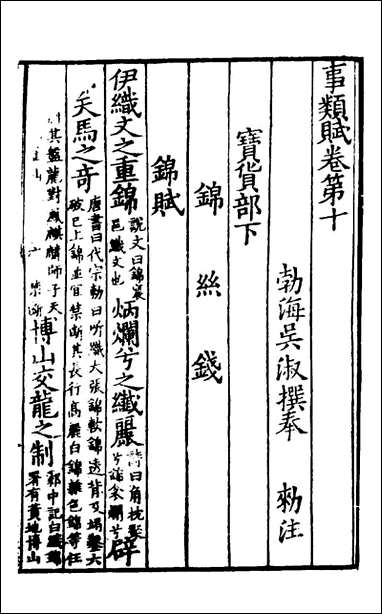 事類賦卷第十
勃海吳淑撰奉 勑注
寶貨部下
錦 絲 錢
錦賦
伊織文之重錦說文曰錦襄邑織文也炳爛兮之纖麗詩曰角枕粲兮錦衾爛兮辟
矢馬之奇唐書曰代宗勑曰所織大張錦軟錦透背及竭鑿六破已上錦並宜禁斷其長行高麗白錦雜色錦等任
其盤龍對鳳麒麟師子天禁斷博山交龍之制鄴中記曰織錦署有黃地博山